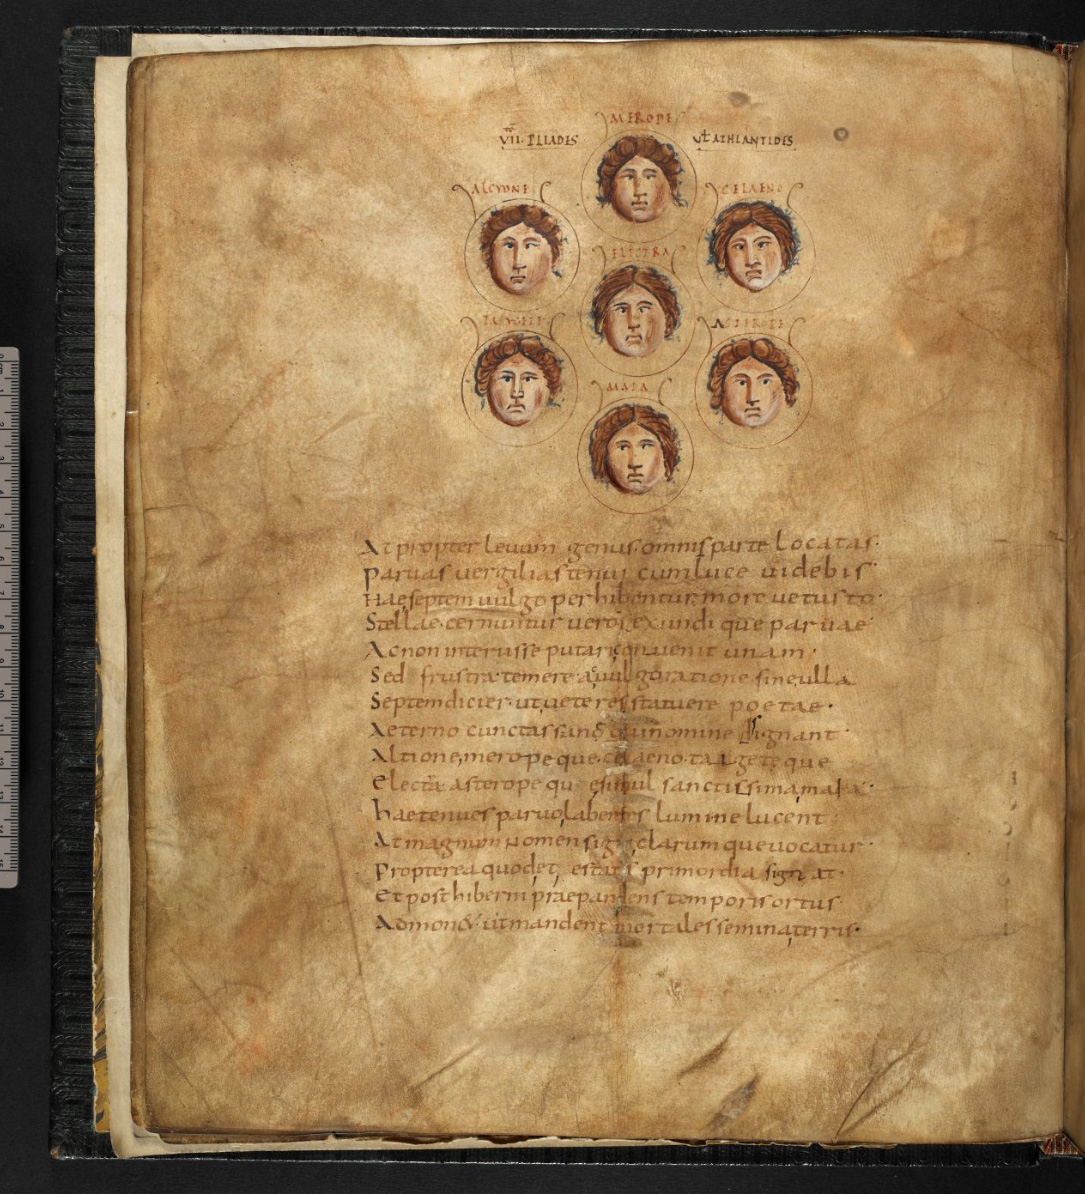 MEROPE
VII. PLIADES
VƚATHLANTIDES
ALCYONE
CELAENO
ELECTRA
ASTEROPE
MAIA
At propter levum genus omnis parte locatas.
Parvas vergilias tenui cum luce videbis
Hae septem vulgo perhibentur more vetusto.
Stellae cernuntur vero sex undique parvae
Ac non interiisse putari convenit unam.
Sed frustra temere a vulgo ratione sine ulla
Septem dicier. ut veteres statuere poetae.
Aeterno cunctas nomine signant
Altione, merope que celaeno. taygete que
Electra. asterope que simul sanctissima maia.
hae tenues parvo labentes lumine lucent
At magnum nomen signi clarum que vocatur.
Propterea quod et estatis primordia signat.
Et post hiberni praepandens temporis ortus
Admonet ut mandent mortales semina terris.